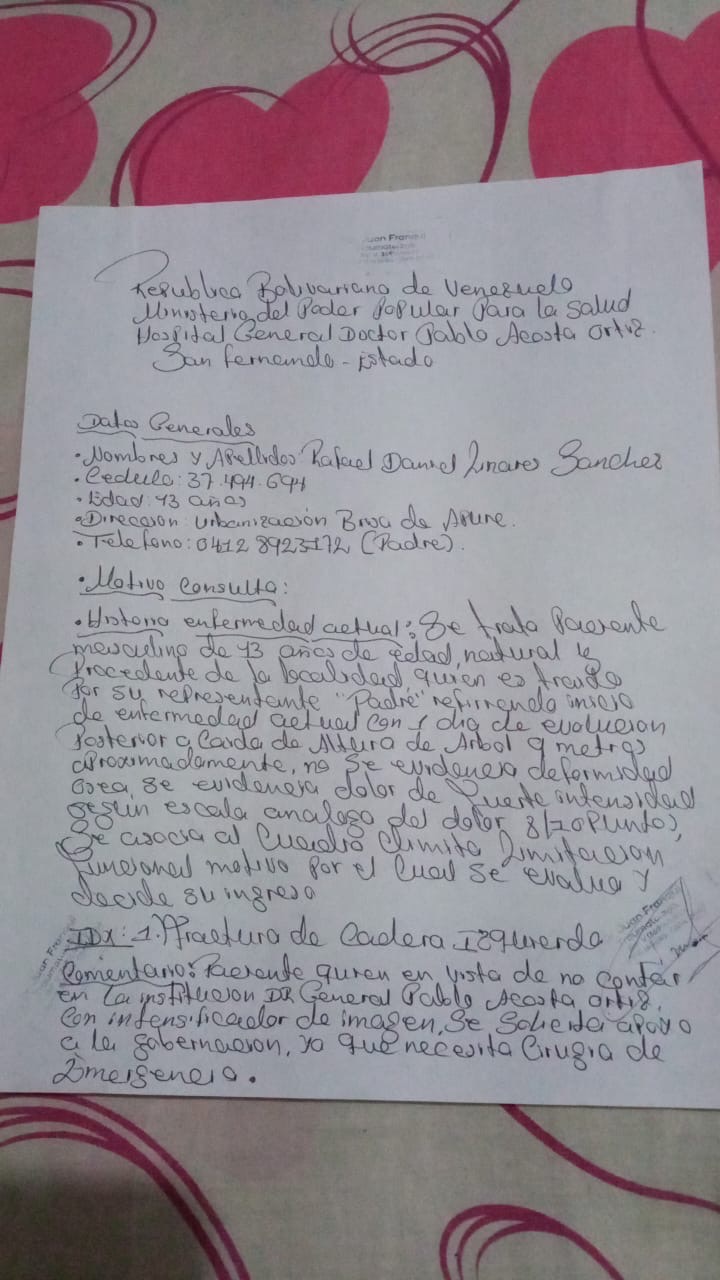 Juan Fran
Republica Bolivariana de Venezuela
Ministerio del Poder Popular Para la Salud
Hospital General Doctor Pablo Acosta Ortiz.
San Fernando - Estado
Datos Generales
• Nombres y Apellidos Rafael Daniel Linares Sanchez
• Cedula: 37.494.694
• Edad: 13 años
• Direccion: Urbanización Brisa de Apure.
• Telefono: 0412 8923172 (Padre).
• Motivo Consulta:
• Historia enfermedad actual: Se trata Paciente
masculino de 13 años de edad, natural y
Procedente de la localidad quien es traido
Por su representante "Padre" refiriendo inicio
de enfermedad actual con 1 dia de evolucion
Posterior a Caida de Altura de Arbol 9 metros
aproximadamente, no se evidencia deformidad
osea, se evidencia dolor de fuerte intensidad
según escala analoga del dolor 8/10 Puntos,
Se asocia al Cuadro Limitacion
funcional motivo por el cual se evalua y
decide su ingreso
Juan Fran
IDx: 1. Fractura de Cadera Izquierda
Comentario: Paciente quien en vista de no contar
en la institucion DR General Pablo Acosta Ortiz,
Con intensificador de imagen, Se Solicita apoyo
a la gobernacion, ya que necesita Cirugia de
Emergencia.